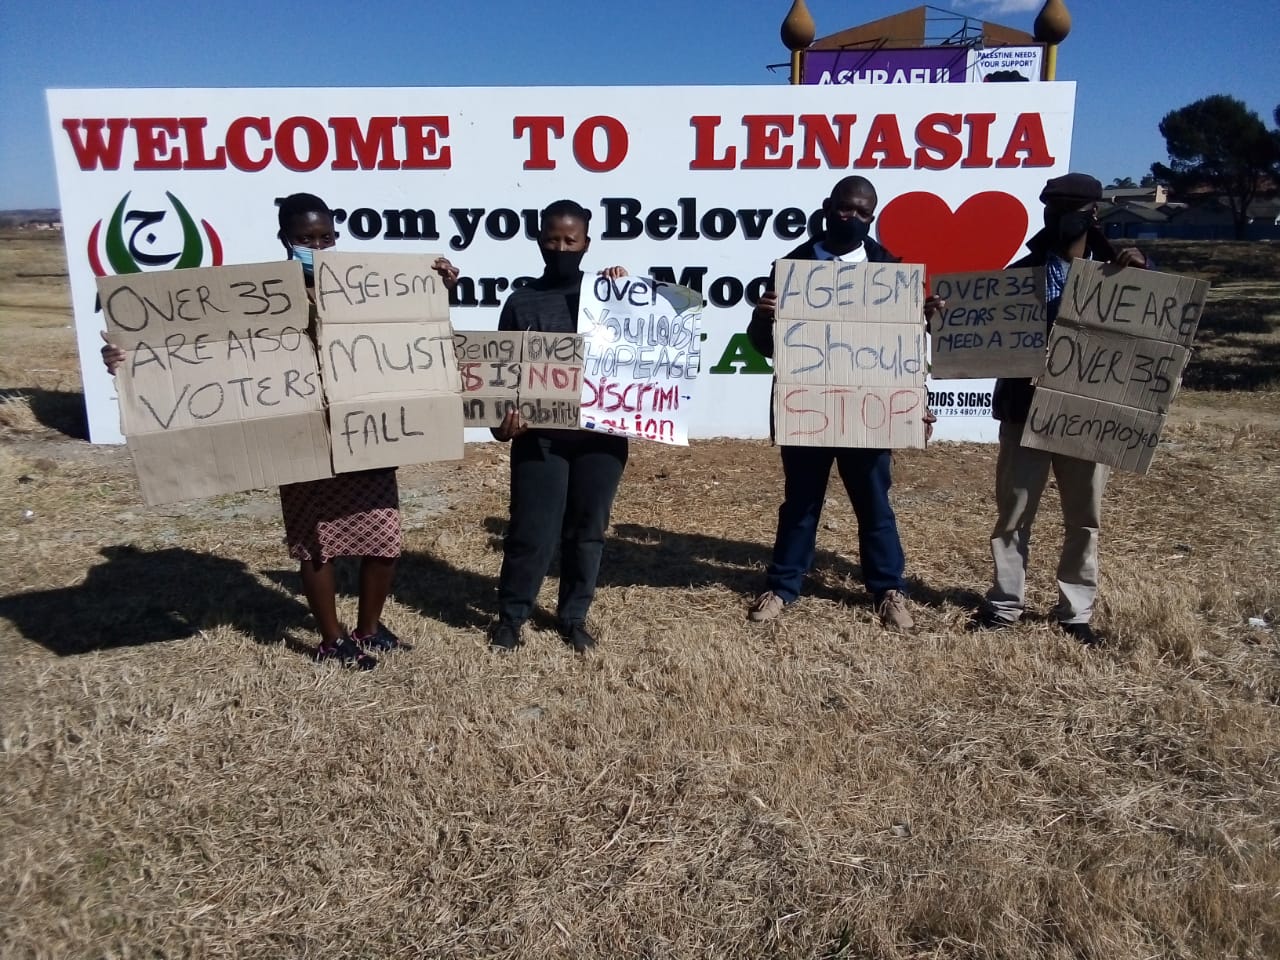 ASHRAFUL
PALESTINE NEEDS
YOUR SUPPORT
WELCOME TO LENASIA
From your Beloved
ج
OVER 35
ARE AlSO
VOTERS
AGEISM
MUST
FALL
Being OVER
35 IS NOT
an inability
over
YOU LOOSE
HOPE AGE
DISCRIMI-
nation
AGEISM
Should
STOP
OVER 35
years STILL
NEED A JOB
WE ARE
OVER 35
unemployed
RIOS SIGNS
081 735 4801/07